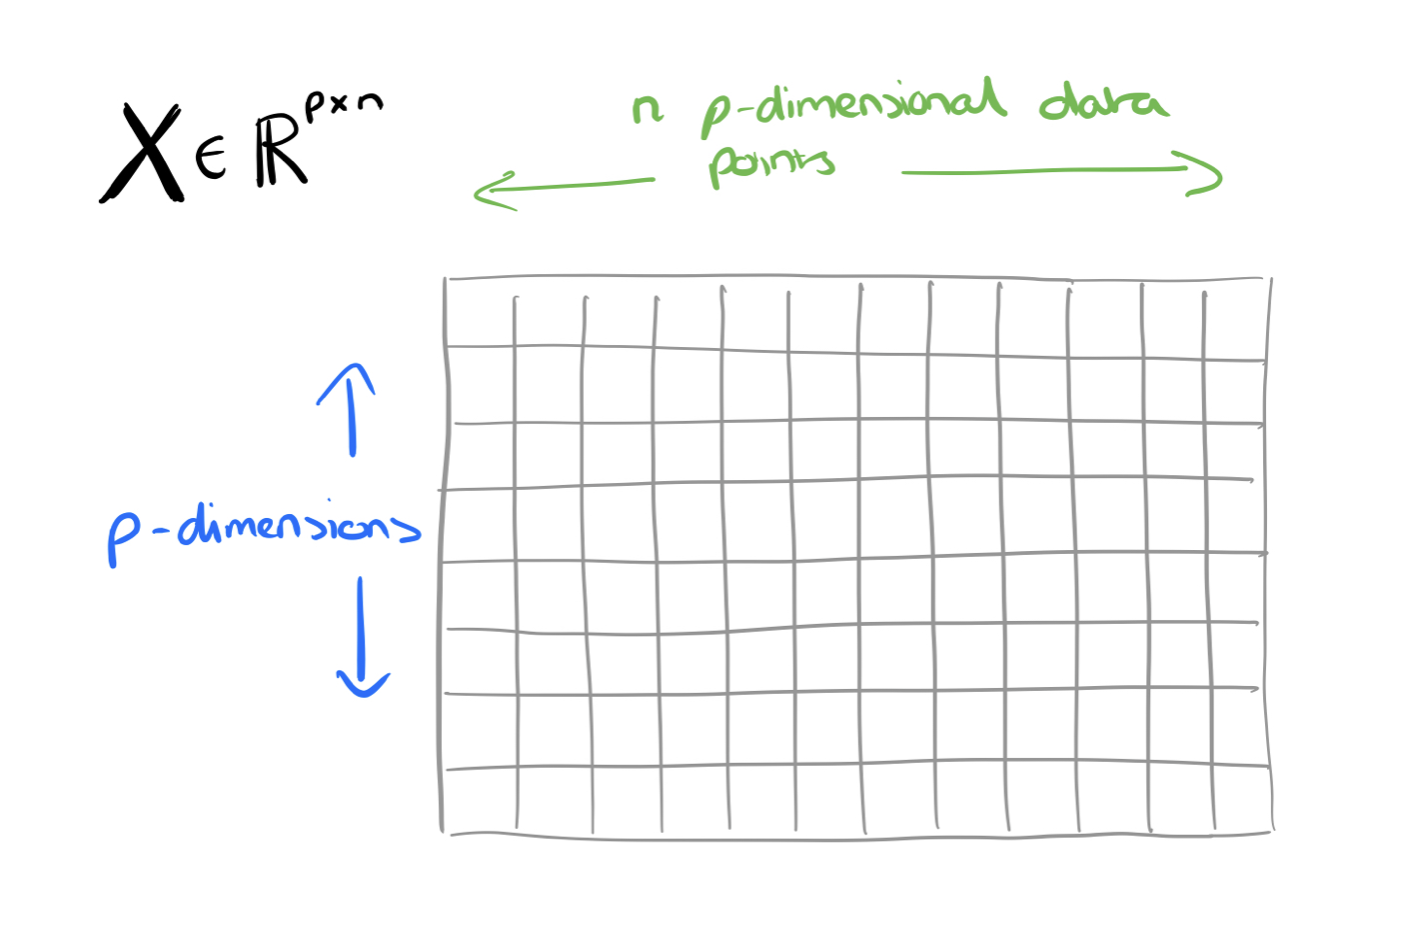 X ∈ ℝᵖˣⁿ
n p-dimensional data
points
p-dimensions